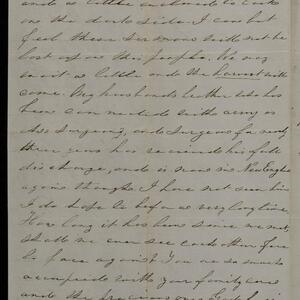 and a little inclined to look
on the dark side. I can but
feel these sermons will not be
lost upon this people. We may
wait a little and the harvest will
come. My husbands brother who has
been connected with army as
Ass. Surgeon, and Surgeon for nearly
three years has received his full
discharge, and is now in New England
again though I have not seen him
I do hope to before very long time.
How long it has been since we met,
shall we ever see each other face
to face again? You are so much
occupied with your family cares
and the precious